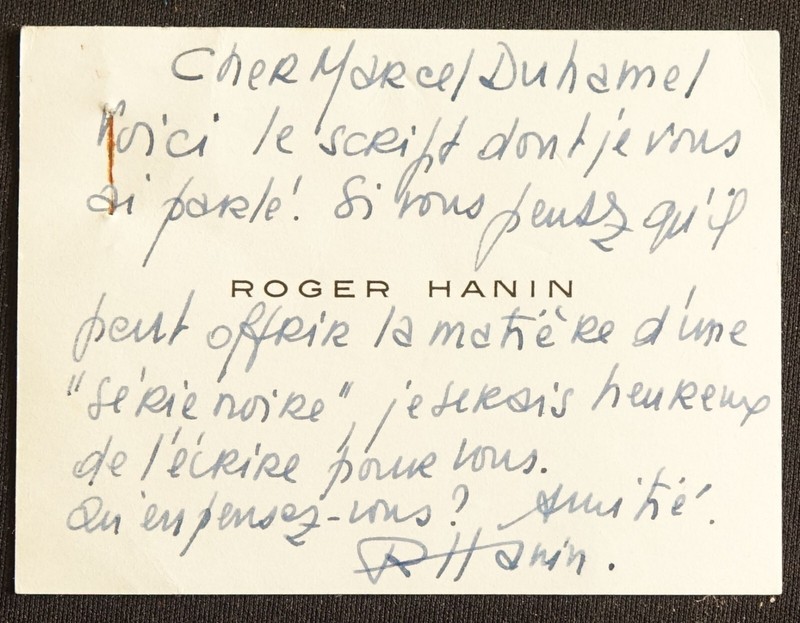 Cher Marcel Duhamel
Voici le script dont je vous
ai parlé. Si vous pensez qu'il
ROGER HANIN
peut offrir la matière d'une
"série noire", je serais heureux
de l'écrire pour vous.
Qu'en pensez-vous? Amitié.
RHanin.